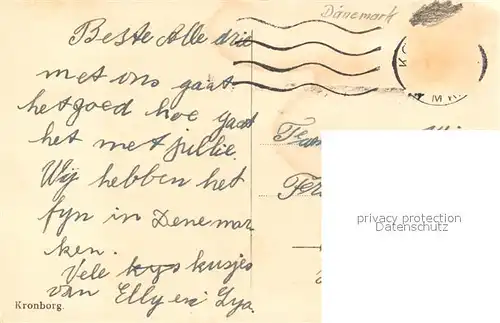 Dänemark
Beste Alle drie
met ons gaat
het goed hoe gaat
het met jullie.
Wij hebben het
fyn in Denemar
ken.
Vele kusjes
van Elly en Lya.
Kronborg.
privacy protection
Datenschutz